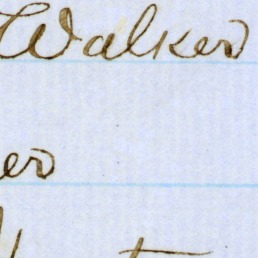 Walker
er